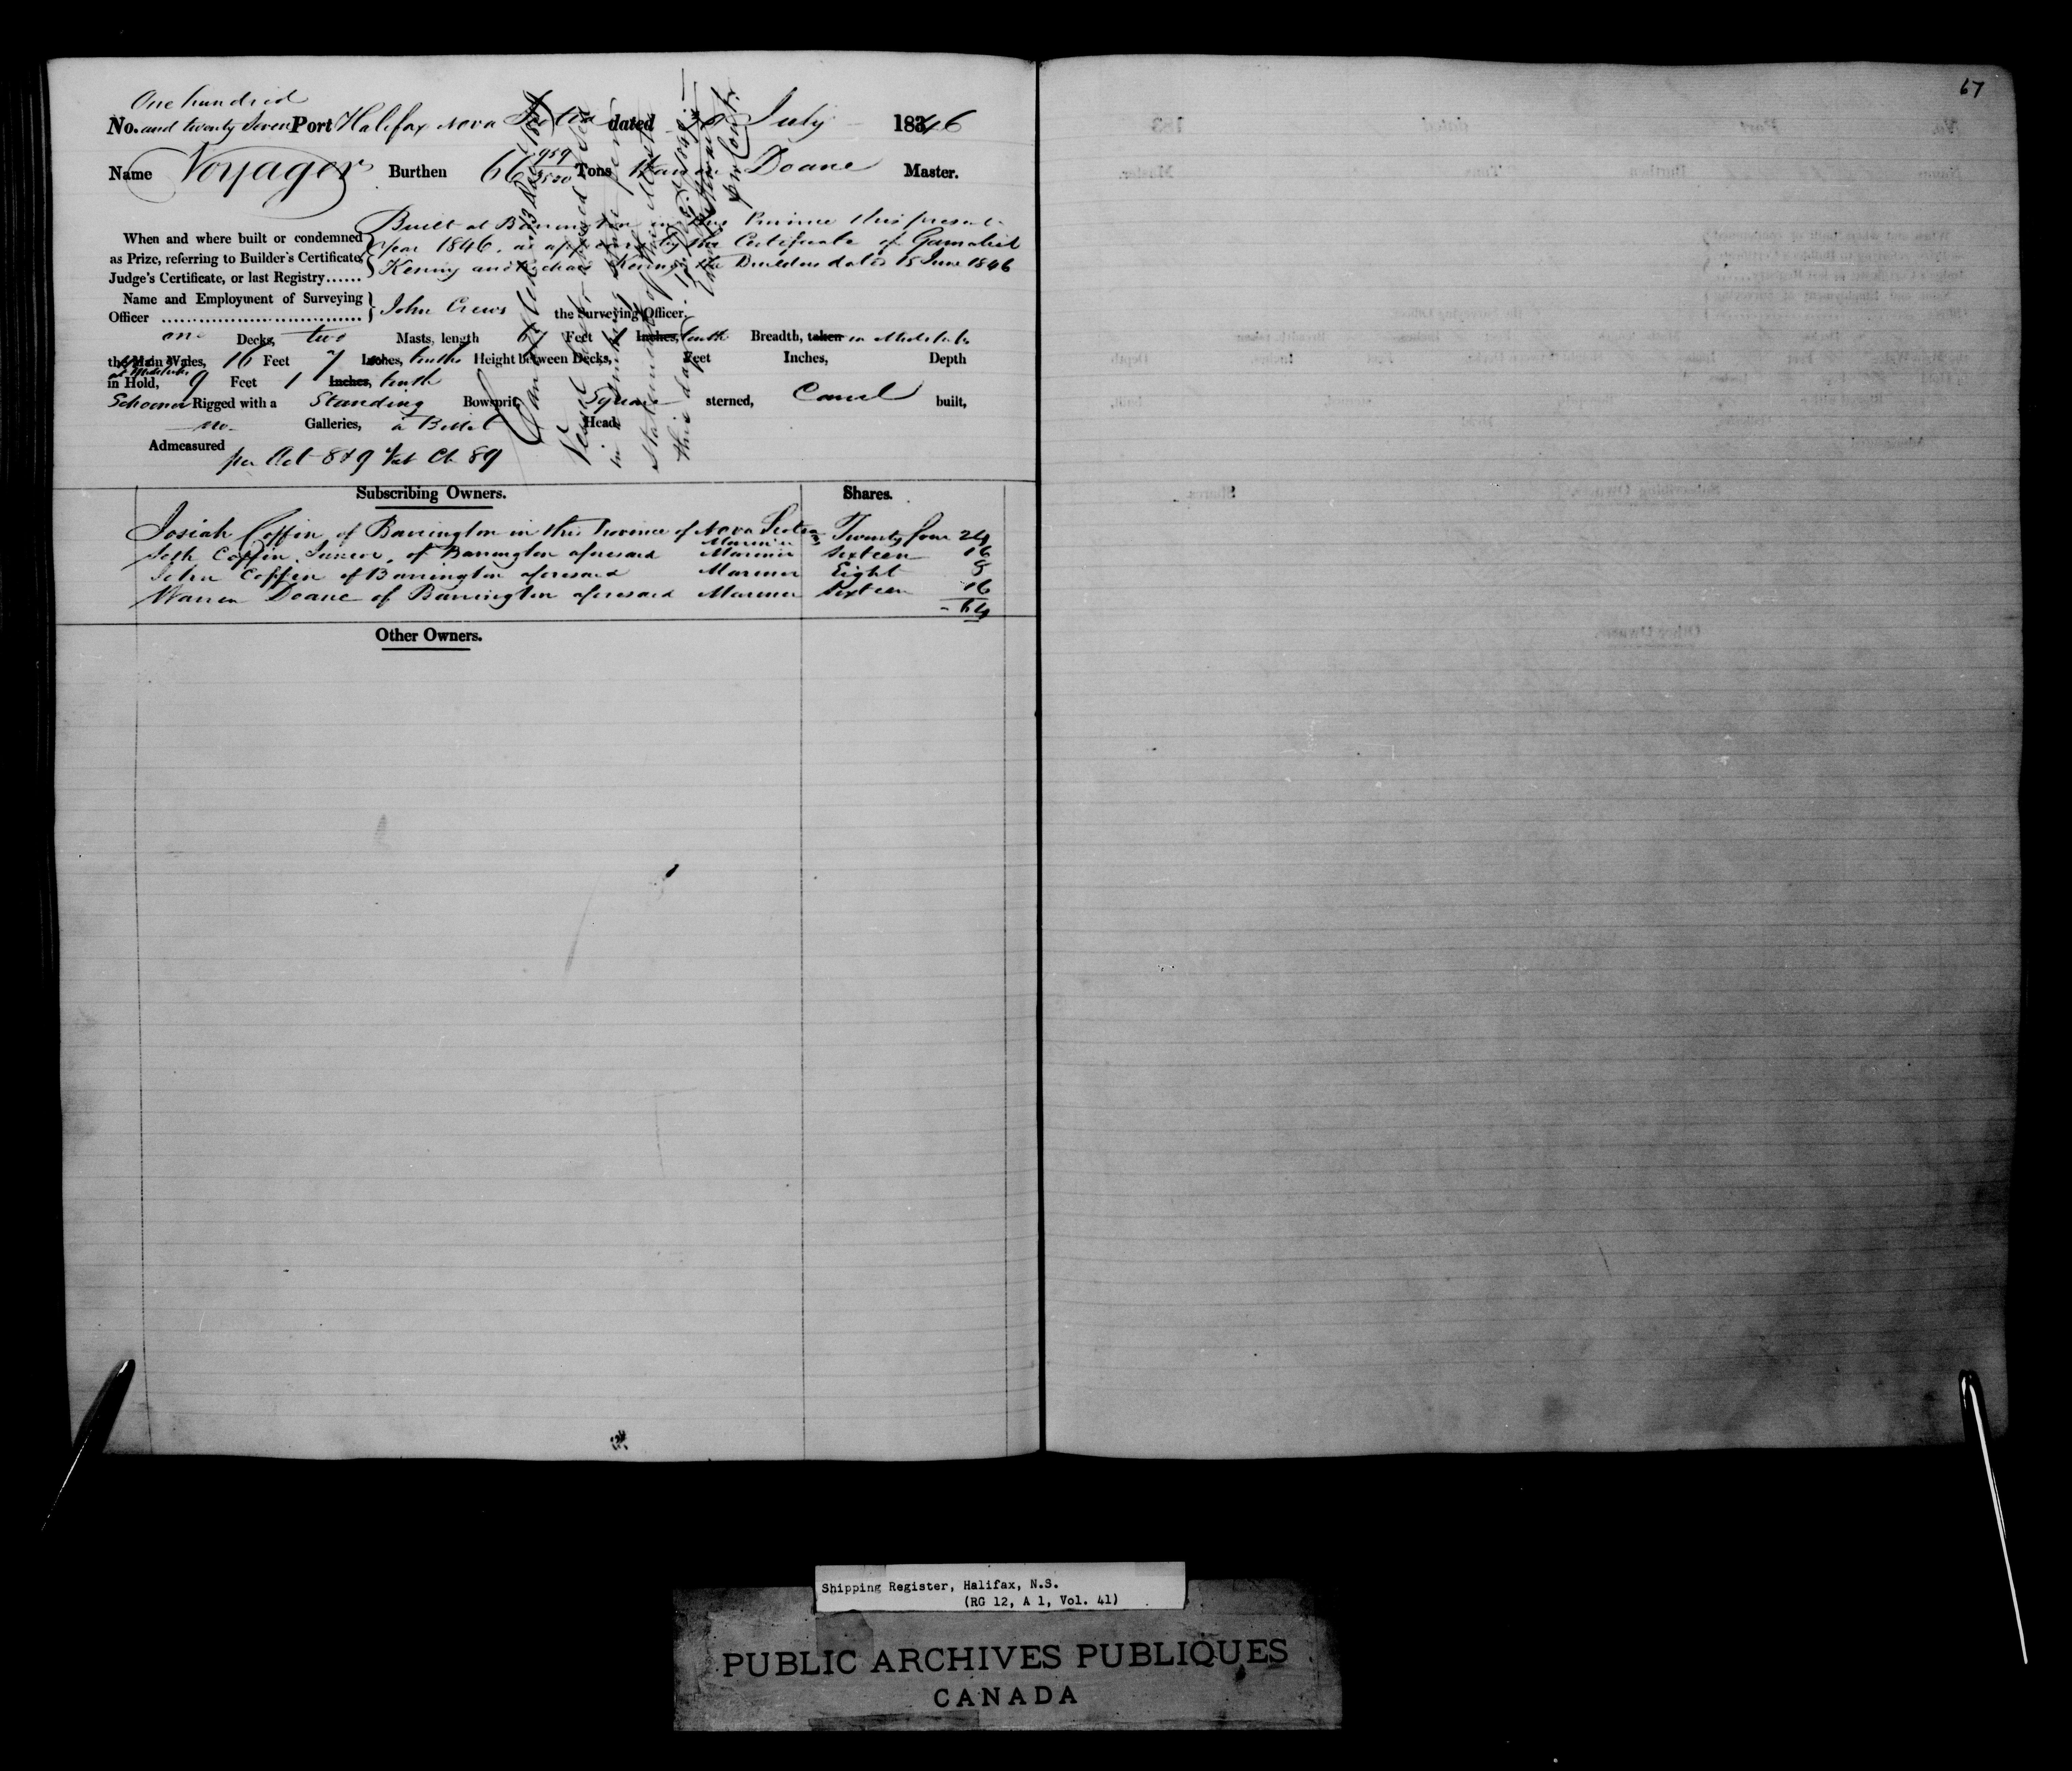 67
One hundred
No. and twenty Seven Port Halifax Nova Scotia dated 8 July 1846
Name Voyager Burthen 66 959/3500 Tons Warren Doane Master.
Built at Barrington in this Province this present
When and where built or condemned year 1846, as appears by the Certificate of Gamaliel
as Prize, referring to Builder's Certificate, Kenny and Kenny the Builders dated 15 June 1846
Judge's Certificate, or last Registry......
Name and Employment of Surveying
Officer John Crews the Surveying Officer.
one Decks, two Masts, length 67 Feet 1 Inches, tenth Breadth, taken in Midships
the Main Wales, 16 Feet 7 Inches, tenths Height between Decks, Feet Inches, Depth
at Midships
in Hold, 9 Feet 1 Inches, tenth
Schooner Rigged with a Standing Bowsprit, Square sterned, Carvel built,
no Galleries, a Billet Head,
Admeasured
per Act 8 & 9 Vict Ch 89
Cancelled 13
Vessel
in
Statement of
this day
per
Subscribing Owners. Shares.
Josiah Coffin of Barrington in this Province of Nova Scotia Twenty four 24
Mariner
Seth Coffin Junior, of Barrington aforesaid Mariner Sixteen 16
John Coffin of Barrington aforesaid Mariner Eight 8
Warren Doane of Barrington aforesaid Mariner Sixteen 16
64
Other Owners.
Shipping Register, Halifax, N.S.
(RG 12, A 1, Vol. 41)
PUBLIC ARCHIVES PUBLIQUES
CANADA